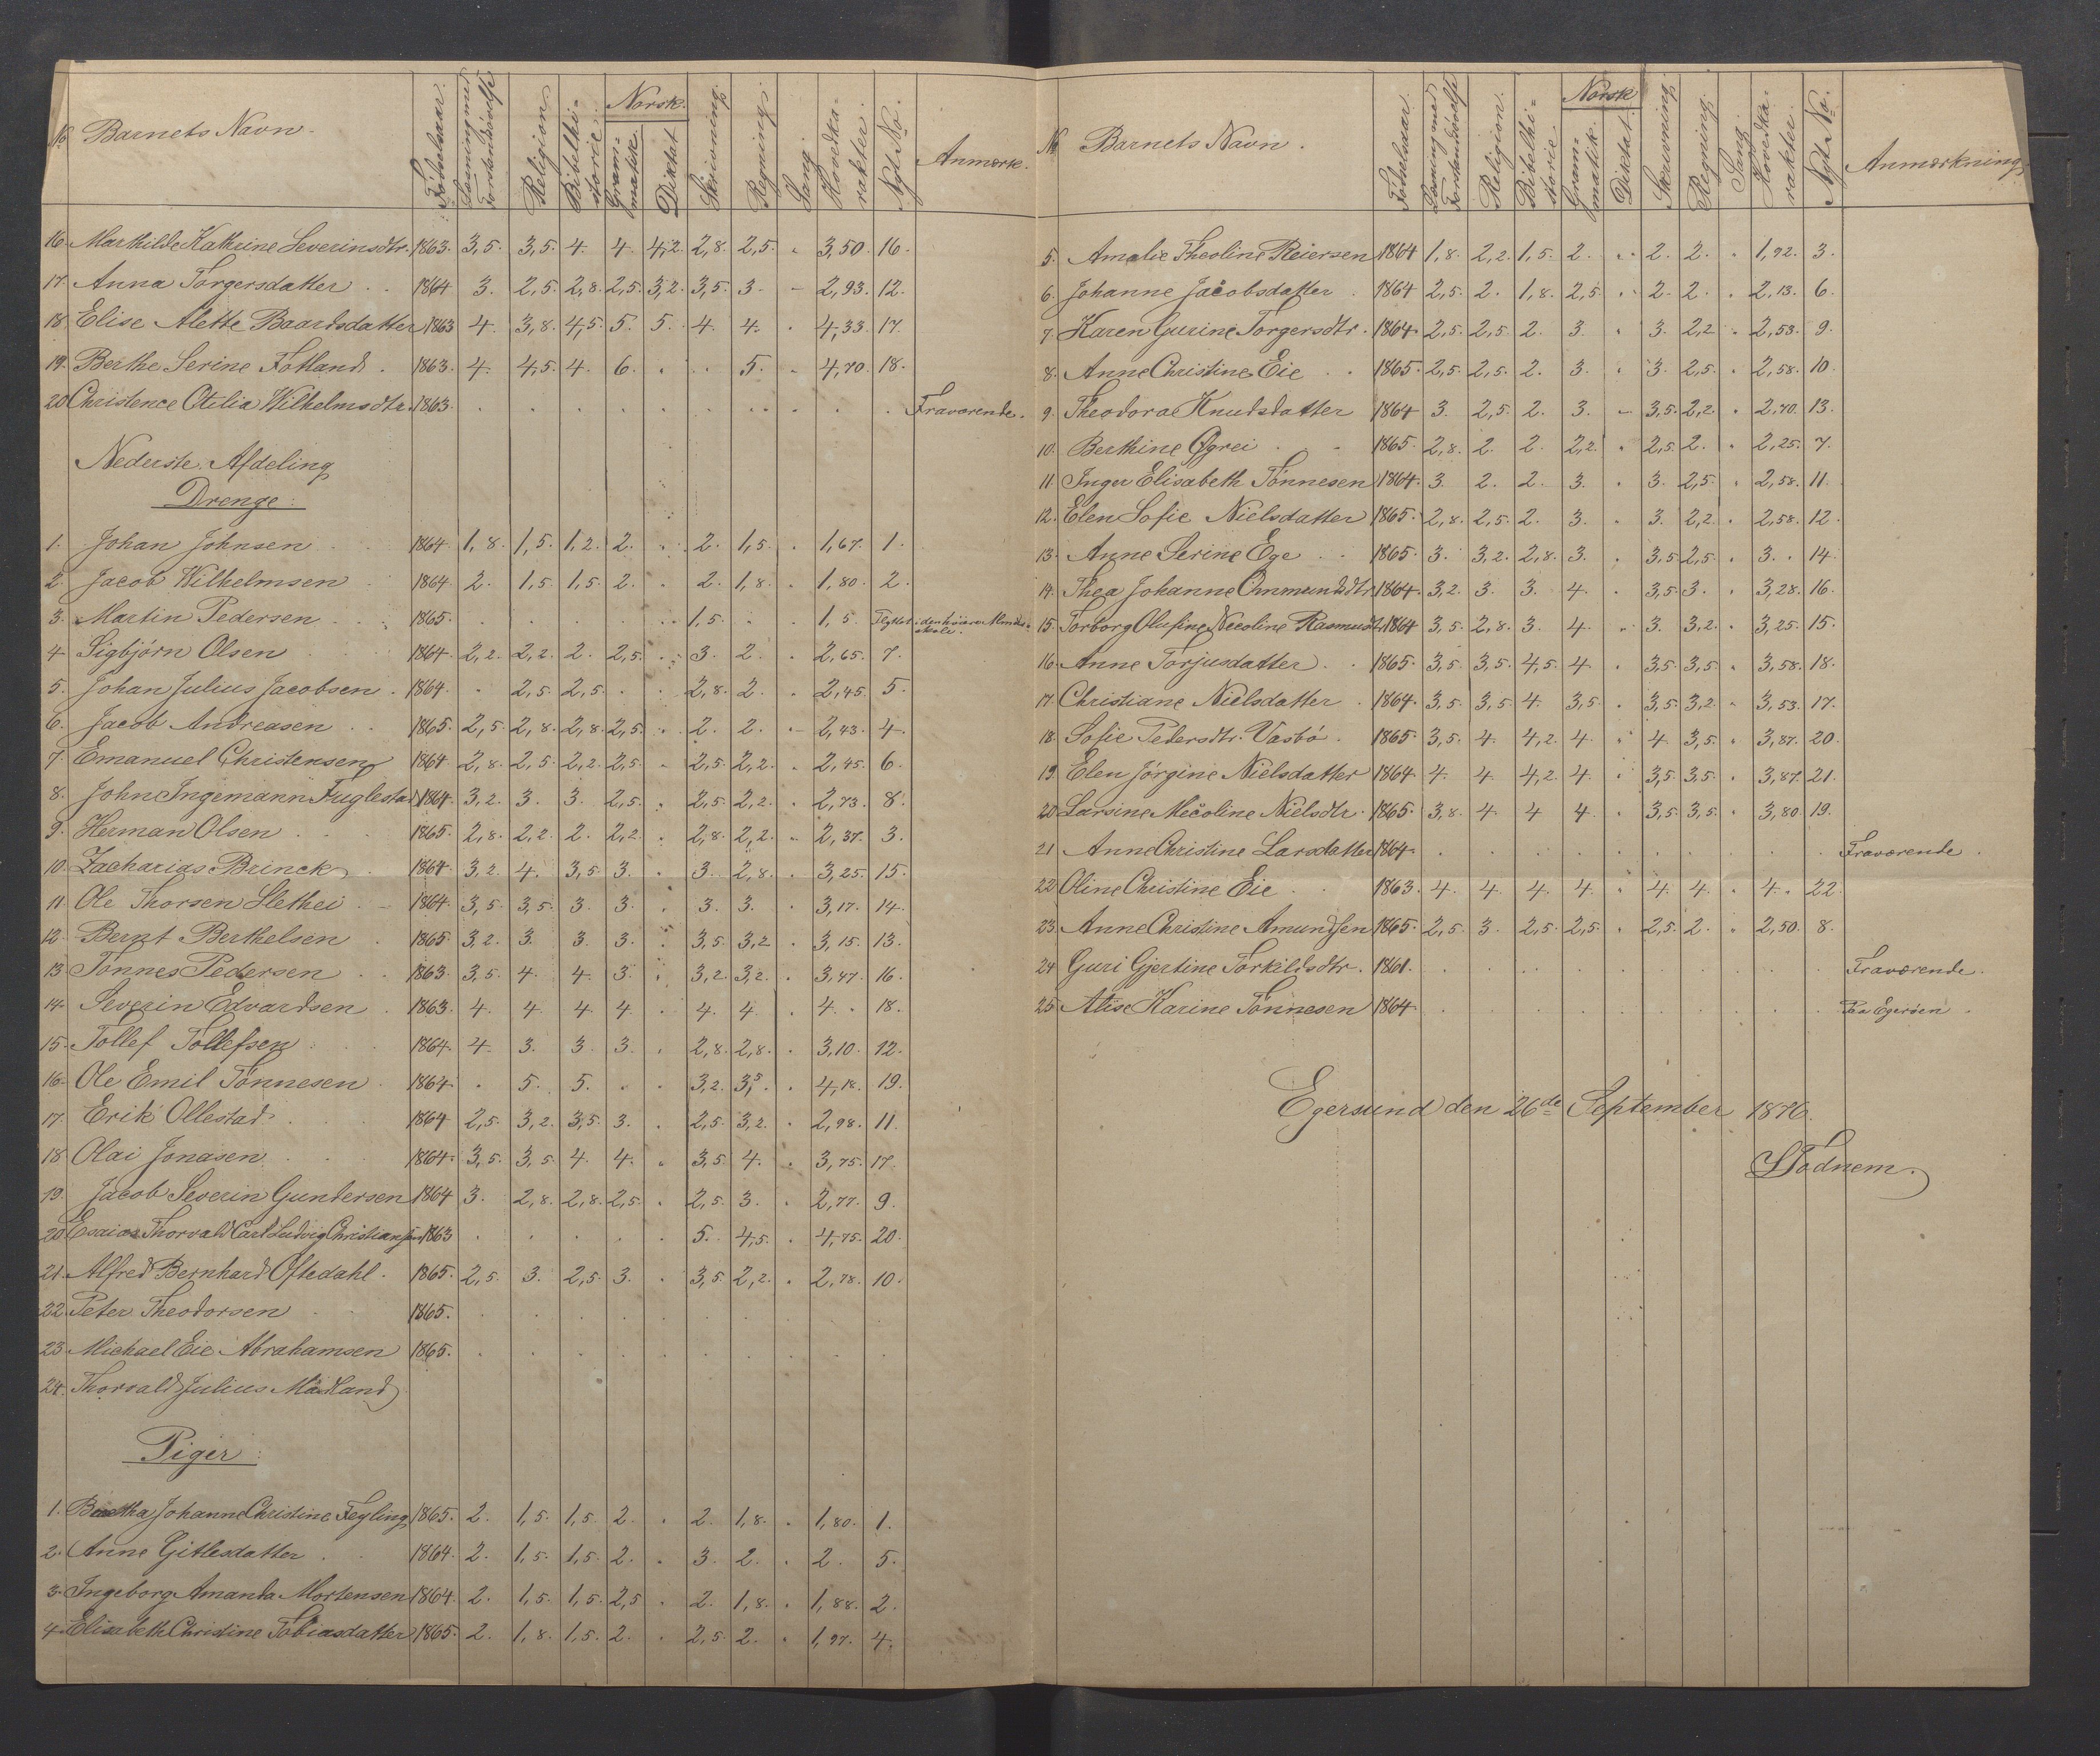 No Barnets Navn. Fødselsaar. Læsning med Forstandsøvelse Religion. Bibelhistorie. Norsk. Grammatik. Diktat Skrivning. Regning. Sang Hovedkarakter. Nyt No. Anmærk.
16. Marthilde Kathrine Severinsdtr. 1863. 3,5. 3,5. 4. 4. 4,2. 2,8. 2,5. . 3,50. 16.
17. Anna Torgersdatter . . 1864 3. 2,5. 2,8. 2,5. 3,2. 3,5. 3. - 2,93. 12.
18. Elise Alette Baardsdatter 1863 4. 3,8. 4,5. 5. 5. 4. 4. . 4,33. 17.
19. Berthe Serine Fotland . 1863. 4. 4,5. 4. 6. . . 5. . 4,70. 18.
20. Christence Otilia Wilhelmsdtr. 1863. . . . . . . . . . . Fraværende.
Nederste Afdeling
Drenge:
1. Johan Johnsen 1864. 1,8. 1,5. 1,2. 2. . 2. 1,5. . 1,67. 1.
2. Jacob Wilhelmsen 1864 2. 1,5. 1,5. 2. . 2. 1,8. . 1,80. 2.
3. Martin Pedersen 1865. . . . . . 1,5. . . 1,5. Flyttet i den høiere Almueskole.
4. Sigbjørn Olsen 1864. 2,2. 2,2. 2. 2,5. . 3. 2. . 2,65. 7.
5. Johan Julius Jacobsen . 1864. . 2,5. 2,5. . . 2,8. 2. . 2,45. 5.
6. Jacob Andreasen 1865. 2,5. 2,8. 2,8. 2,5. . 2. 2. - 2,43. 4.
7. Emanuel Christensen 1864 2,8. 2,5. 2,2. 2,5. . 2,5. 2,2. . 2,45. 6.
8. John Ingemann Fuglestad 1864. 3,2. 3. 3. 2,5. . 2,5. 2,2. . 2,73. 8.
9. Herman Olsen 1865. 2,8. 2,2. 2. 2,2. . 2,8. 2,2. . 2,37. 3.
10. Zacharias Brinck 1864. 3,2. 4. 3,5. 3. . 3. 2,8. . 3,25. 15.
11. Ole Thorsen Slethei 1864. 3,5. 3,5. 3. 3. . 3. 3. . 3,17. 14.
12. Bernt Berthelsen 1865. 3,2. 3. 3. 3. . 3,5. 3,2 . 3,15. 13.
13. Tønnes Pedersen 1863. 3,5. 4. 4. 3. . 3,2. 3,2. . 3,47. 16.
14. Severin Edvardsen 1863. 4. 4. 4. 4. . 4. 4. . 4. . 18.
15. Tollef Tollefsen 1864. 4. 3. 3. 3. . 2,8. 2,8. . 3,10. 12.
16. Ole Emil Tønnesen 1864. . 5. 5. . . 3,2. 3,5. . 4,18. 19.
17. Erik Ollestad 1864 2,5. 3,2. 3,5. 3. . 2,5. 3,2. . 2,98. 11.
18. Olai Jonasen 1864. 3,5. 3,5. 4. 4. . 3,5. 4. . 3,75. 17.
19. Jacob Severin Gundersen 1864 3. 2,8. 2,8. 2,5. . 2,5. 3. . 2,77. 9.
20. Esaias Thorvald Carl Ludvig Christiansen 1863 . . . . . 5. 4,5. . 4,75. 20.
21. Alfred Bernhard Oftedahl. 1865. 2,5. 3. 2,5. 3. . 3,5. 2,2. . 2,78. 10.
22. Peter Theodorsen 1865.
23. Michael Eie Abrahamsen 1865.
24. Thorvald Julius Madland
Piger:
1. Bertha Johanne Christine Feyling 1865. 2. 1,5. 1,5. 2. . 2. 1,8. . 1,80. 1.
2. Anne Gitlesdatter . 1864. 2. 1,5. 1,5. 2. . 3. 2. . 2. 5.
3. Ingeborg Amanda Mortensen 1864. 2. 1,5. 1,5. 2,5 . 2. 1,8. . 1,88. 2.
4. Elisabeth Christine Tobiasdatter 1865. 2. 1,8. 1,5. 2. . 2,5. 2. . 1,97. 4.
No Barnets Navn. Fødselsaar. Læsning med Forstandsøvelse Religion. Bibelhistorie Norsk Grammatik. Diktat. Skrivning. Regning. Sang. Hovedkarakter. Nyt No. Anmærkning
5. Amalie Theoline Reiersen 1864 1,8. 2,2. 1,5. 2. . 2. 2. . 1,92. 3.
6. Johanne Jacobsdatter . 1864 2,5. 2. 1,8. 2,5. . 2. 2. . 2,13. 6.
7. Karen Gurine Torgersdtr. 1864. 2,5. 2,5. 2. 3. . 3. 2,2 . 2,53. 9.
8. Anne Christine Eie . . 1865. 2,5. 2,5. 2. 3. . 3. 2,5. . 2,58. 10.
9. Theodora Knudsdatter 1864 3. 2,5. 2. 3. - 3,5. 2,2. . 2,70. 13.
10. Berthine Øgrei . . 1865. 2,8. 2. 2. 2,2. . 2,5. 2. . 2,25. 7.
11. Inger Elisabeth Tønnesen 1864. 3. 2. 2. 3. . 3. 2,5. . 2,58. 11.
12. Elen Sofie Nielsdatter 1865. 2,8. 2,5. 2. 3. . 3. 2,2. . 2,58. 12.
13. Anne Serine Ege . . 1865. 3. 3,2. 2,8. 3. . 3,5. 2,5. . 3. . 14.
14. Thea Johanne Ommundsdtr 1864. 3,2. 3. 3. 4. . 3,5. 3. . 3,28. 16.
15. Torborg Olufine Nicoline Rasmusdtr 1864 3,5. 2,8. 3. 4. . 3. 3,2. . 3,25. 15.
16. Anne Torjusdatter . . 1865. 3,5. 3,5. 4,5. 4. . 3,5. 3,5. . 3,58. 18.
17. Christiane Nielsdatter . 1864. 3,5. 3,5. 4. 3,5. . 3,5. 3,2. . 3,53. 17.
18. Sofie Pedersdtr. Vasbø . 1865. 3,5. 4. 4,2. 4. . 4. 3,5. . 3,87. 20.
19. Elen Jørgine Nielsdatter 1864 4. 4. 4,2. 4. . 3,5. 3,5. . 3,87. 21.
20. Larsine Mecoline Nielsdtr. 1865. 3,8. 4. 4 4. . 3,5. 3,5. . 3,80 19.
21 Anne Christine Larsdatter 1864. . . . . . . . . . . Fraværende.
22. Oline Christine Eie . . 1863. 4. 4. 4. 4. . 4. 4. . 4. . 22.
23. Anne Christine Amundsen 1865. 2,5. 3. 2,5. 2,5. . 2,5. 2. . 2,50. 8.
24 Guri Gjertine Torkildsdtr. 1861. . . . . . . . . . . Fraværende.
25. Alise Karine Tønnesen 1864. . . . . . . . . . . Paa Egerøen.
Egersund den 26de September 1876.
S Todnem.